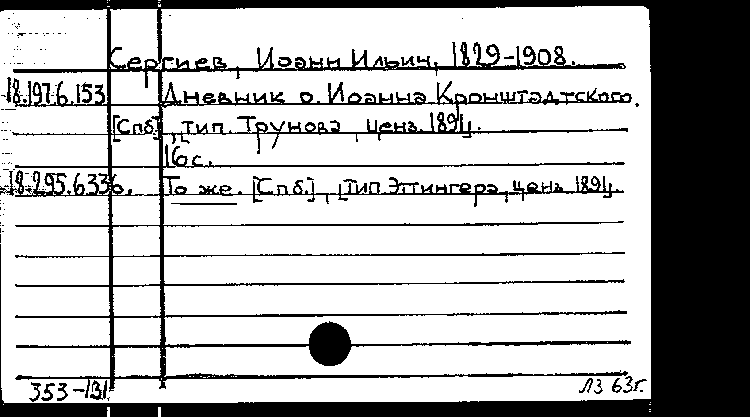 Сергиев, Иоанн Ильич, 1829-1908.
18.197.6.153 Дневник о. Иоанна Кронштадтского.
[Спб], тип. Трунова, ценз. 1891.
16 с.
18.295.6.336. То же. [Спб.], [тип. Эттингера, ценз 1891].
353-131 ЛЗ 63г.